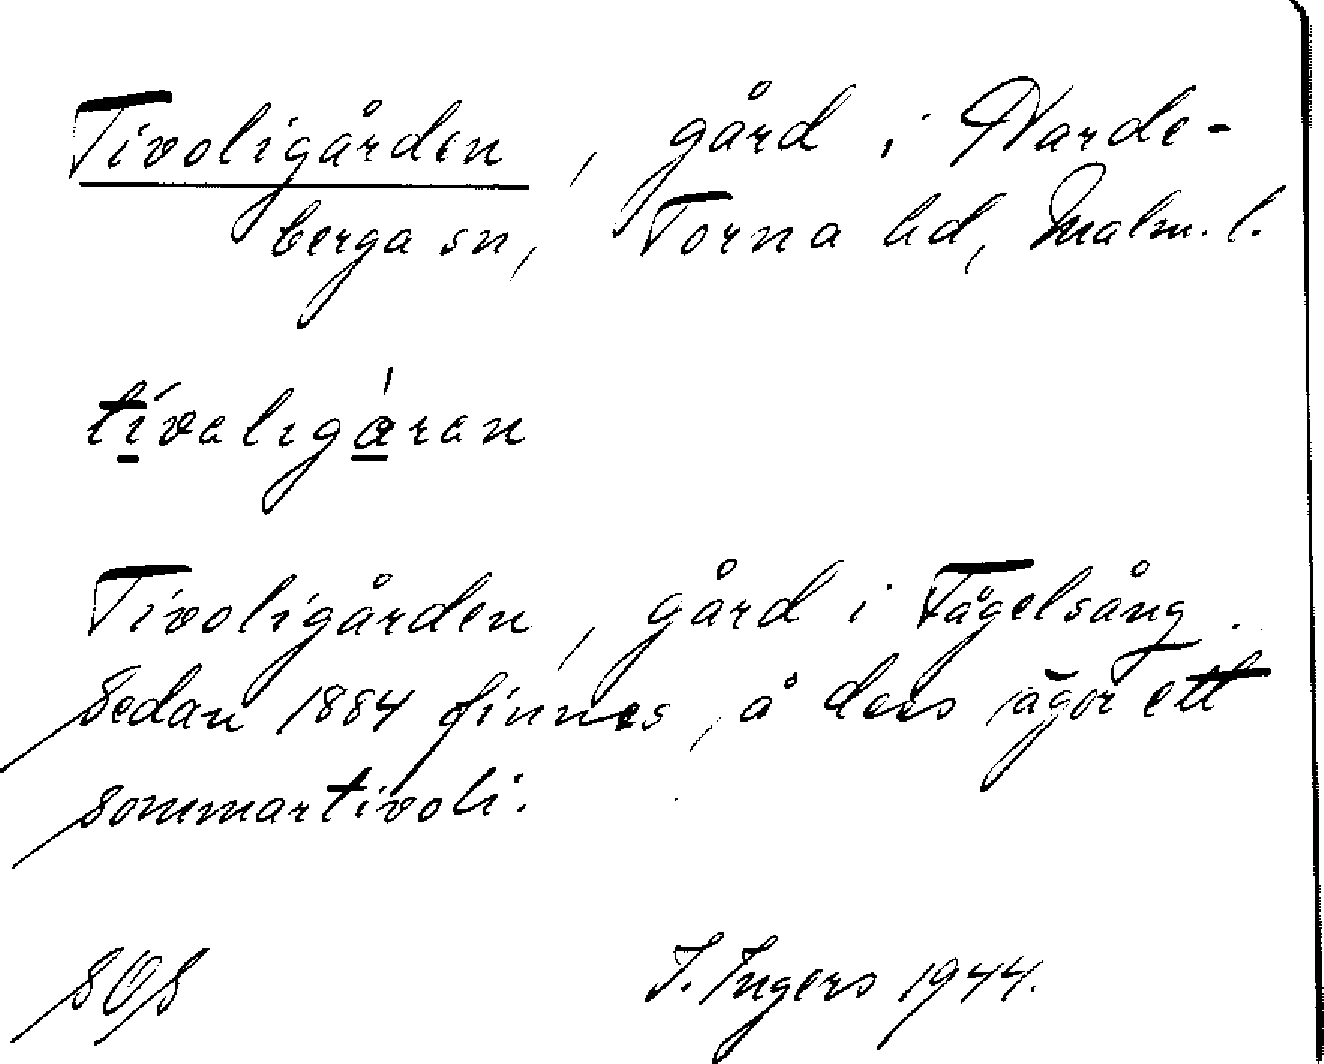 Tivoligården, gård i Harde-
berga sn, Torna hd, Malm. l.
tívalıgáran
Tivoligården, gård i Fågelsång.
Sedan 1884 finnes å dess ägor ett
sommartivoli.
SOS I. Ingers 1944.